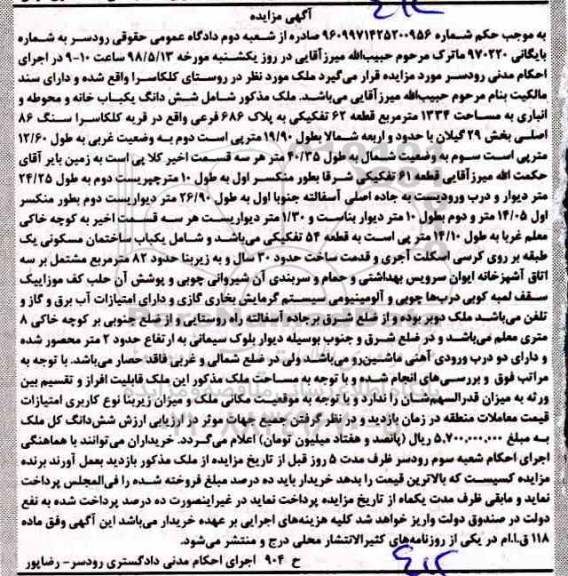 آگهی مزایده
به موجب حکم شماره ۹۶۰۹۹۷۱۴۲۵۲۰۰۹۵۶ صادره از شعبه دوم دادگاه عمومی حقوقی رودسر به شماره
بایگانی ۹۷۰۲۲۰ ماترک مرحوم حبیب‌الله میرزآقایی در روز یکشنبه مورخه ۹۸/۵/۱۳ ساعت ۱۰-۹ در اجرای
احکام مدنی رودسر مورد مزایده قرار می‌گیرد ملک مورد نظر در روستای کلکاسرا واقع شده و دارای سند
مالکیت بنام مرحوم حبیب‌الله میرزآقایی می‌باشد. ملک مذکور شامل شش دانگ یکباب خانه و محوطه و
انباری به مساحت ۱۳۳۴ مترمربع قطعه ۶۲ تفکیکی به پلاک ۶۸۶ فرعی واقع در قریه کلکاسرا سنگ ۸۶
اصلی بخش ۲۹ گیلان با حدود و اربعه شمالا بطول ۱۹/۹۰ مترپی است دوم به وضعیت غربی به طول ۱۲/۶۰
مترپی است سوم به وضعیت شمال به طول ۴۰/۳۵ متر هر سه قسمت اخیر کلا پی است به زمین بایر آقای
حکمت الله میرزآقایی قطعه ۶۱ تفکیکی شرقا بطور منکسر اول به طول ۱۰ مترچپریست دوم به طول ۲۴/۲۵
متر دیوار و درب ورودیست به جاده اصلی آسفالته جنوبا اول به طول ۲۶/۹۰ متر دیواریست دوم بطور منکسر
اول ۱۴/۰۵ متر و دوم بطول ۱۰ متر دیوار بناست و ۱/۳۰ متر دیواریست هر سه قسمت اخیر به کوچه خاکی
معلم غربا به طول ۱۴/۱۰ متر پی است به قطعه ۵۴ تفکیکی می‌باشد و شامل یکباب ساختمان مسکونی یک
طبقه بر روی کرسی اسکلت آجری و قدمت ساخت حدود ۳۰ سال و به زیربنا حدود ۸۲ مترمربع مشتمل بر سه
اتاق آشپزخانه ایوان سرویس بهداشتی و حمام و سربندی آن شیروانی چوبی و پوشش آن حلب کف موزاییک
سقف لمبه کوبی درب‌ها چوبی و آلومینیومی سیستم گرمایش بخاری گازی و دارای امتیازات آب برق و گاز و
تلفن می‌باشد ملک دوبر بوده و از ضلع شرق بر جاده آسفالته راه روستایی و از ضلع جنوبی بر کوچه خاکی ۸
متری معلم می‌باشد و در ضلع شرق و جنوب بوسیله دیوار بلوک سیمانی به ارتفاع حدود ۲ متر محصور شده
و دارای دو درب ورودی آهنی ماشین‌رو می‌باشد ولی در ضلع شمالی و غربی فاقد حصار می‌باشد. با توجه به
مراتب فوق و بررسی‌های انجام شده و با توجه به مساحت ملک مذکور این ملک قابلیت افراز و تقسیم بین
ورثه به میزان قدرالسهم‌شان را ندارد و با توجه به موقعیت مکانی ملک و میزان زیربنا نوع کاربری امتیازات
قیمت معاملات منطقه در زمان بازدید و در نظر گرفتن جمیع جهات موثر در ارزیابی ارزش شش‌دانگ کل ملک
به مبلغ ۵,۷۰۰,۰۰۰,۰۰۰ ریال (پانصد و هفتاد میلیون تومان) اعلام می‌گردد. خریداران می‌توانند با هماهنگی
اجرای احکام شعبه سوم رودسر ظرف مدت ۵ روز قبل از تاریخ مزایده از ملک مذکور بازدید بعمل آورند برنده
مزایده کسیست که بالاترین قیمت را بدهد خریدار باید ده درصد مبلغ فروخته شده را فی‌المجلس پرداخت
نماید و مابقی ظرف مدت یکماه از تاریخ مزایده پرداخت نماید در غیراینصورت ده درصد پرداخت شده به نفع
دولت در صندوق دولت واریز خواهد شد کلیه هزینه‌های اجرایی بر عهده خریدار می‌باشد این آگهی وفق ماده
۱۱۸ ق.ا.ام در یکی از روزنامه‌های کثیرالانتشار محلی درج و منتشر می‌شود.
ح ۹۰۴ اجرای احکام مدنی دادگستری رودسر- رضاپور